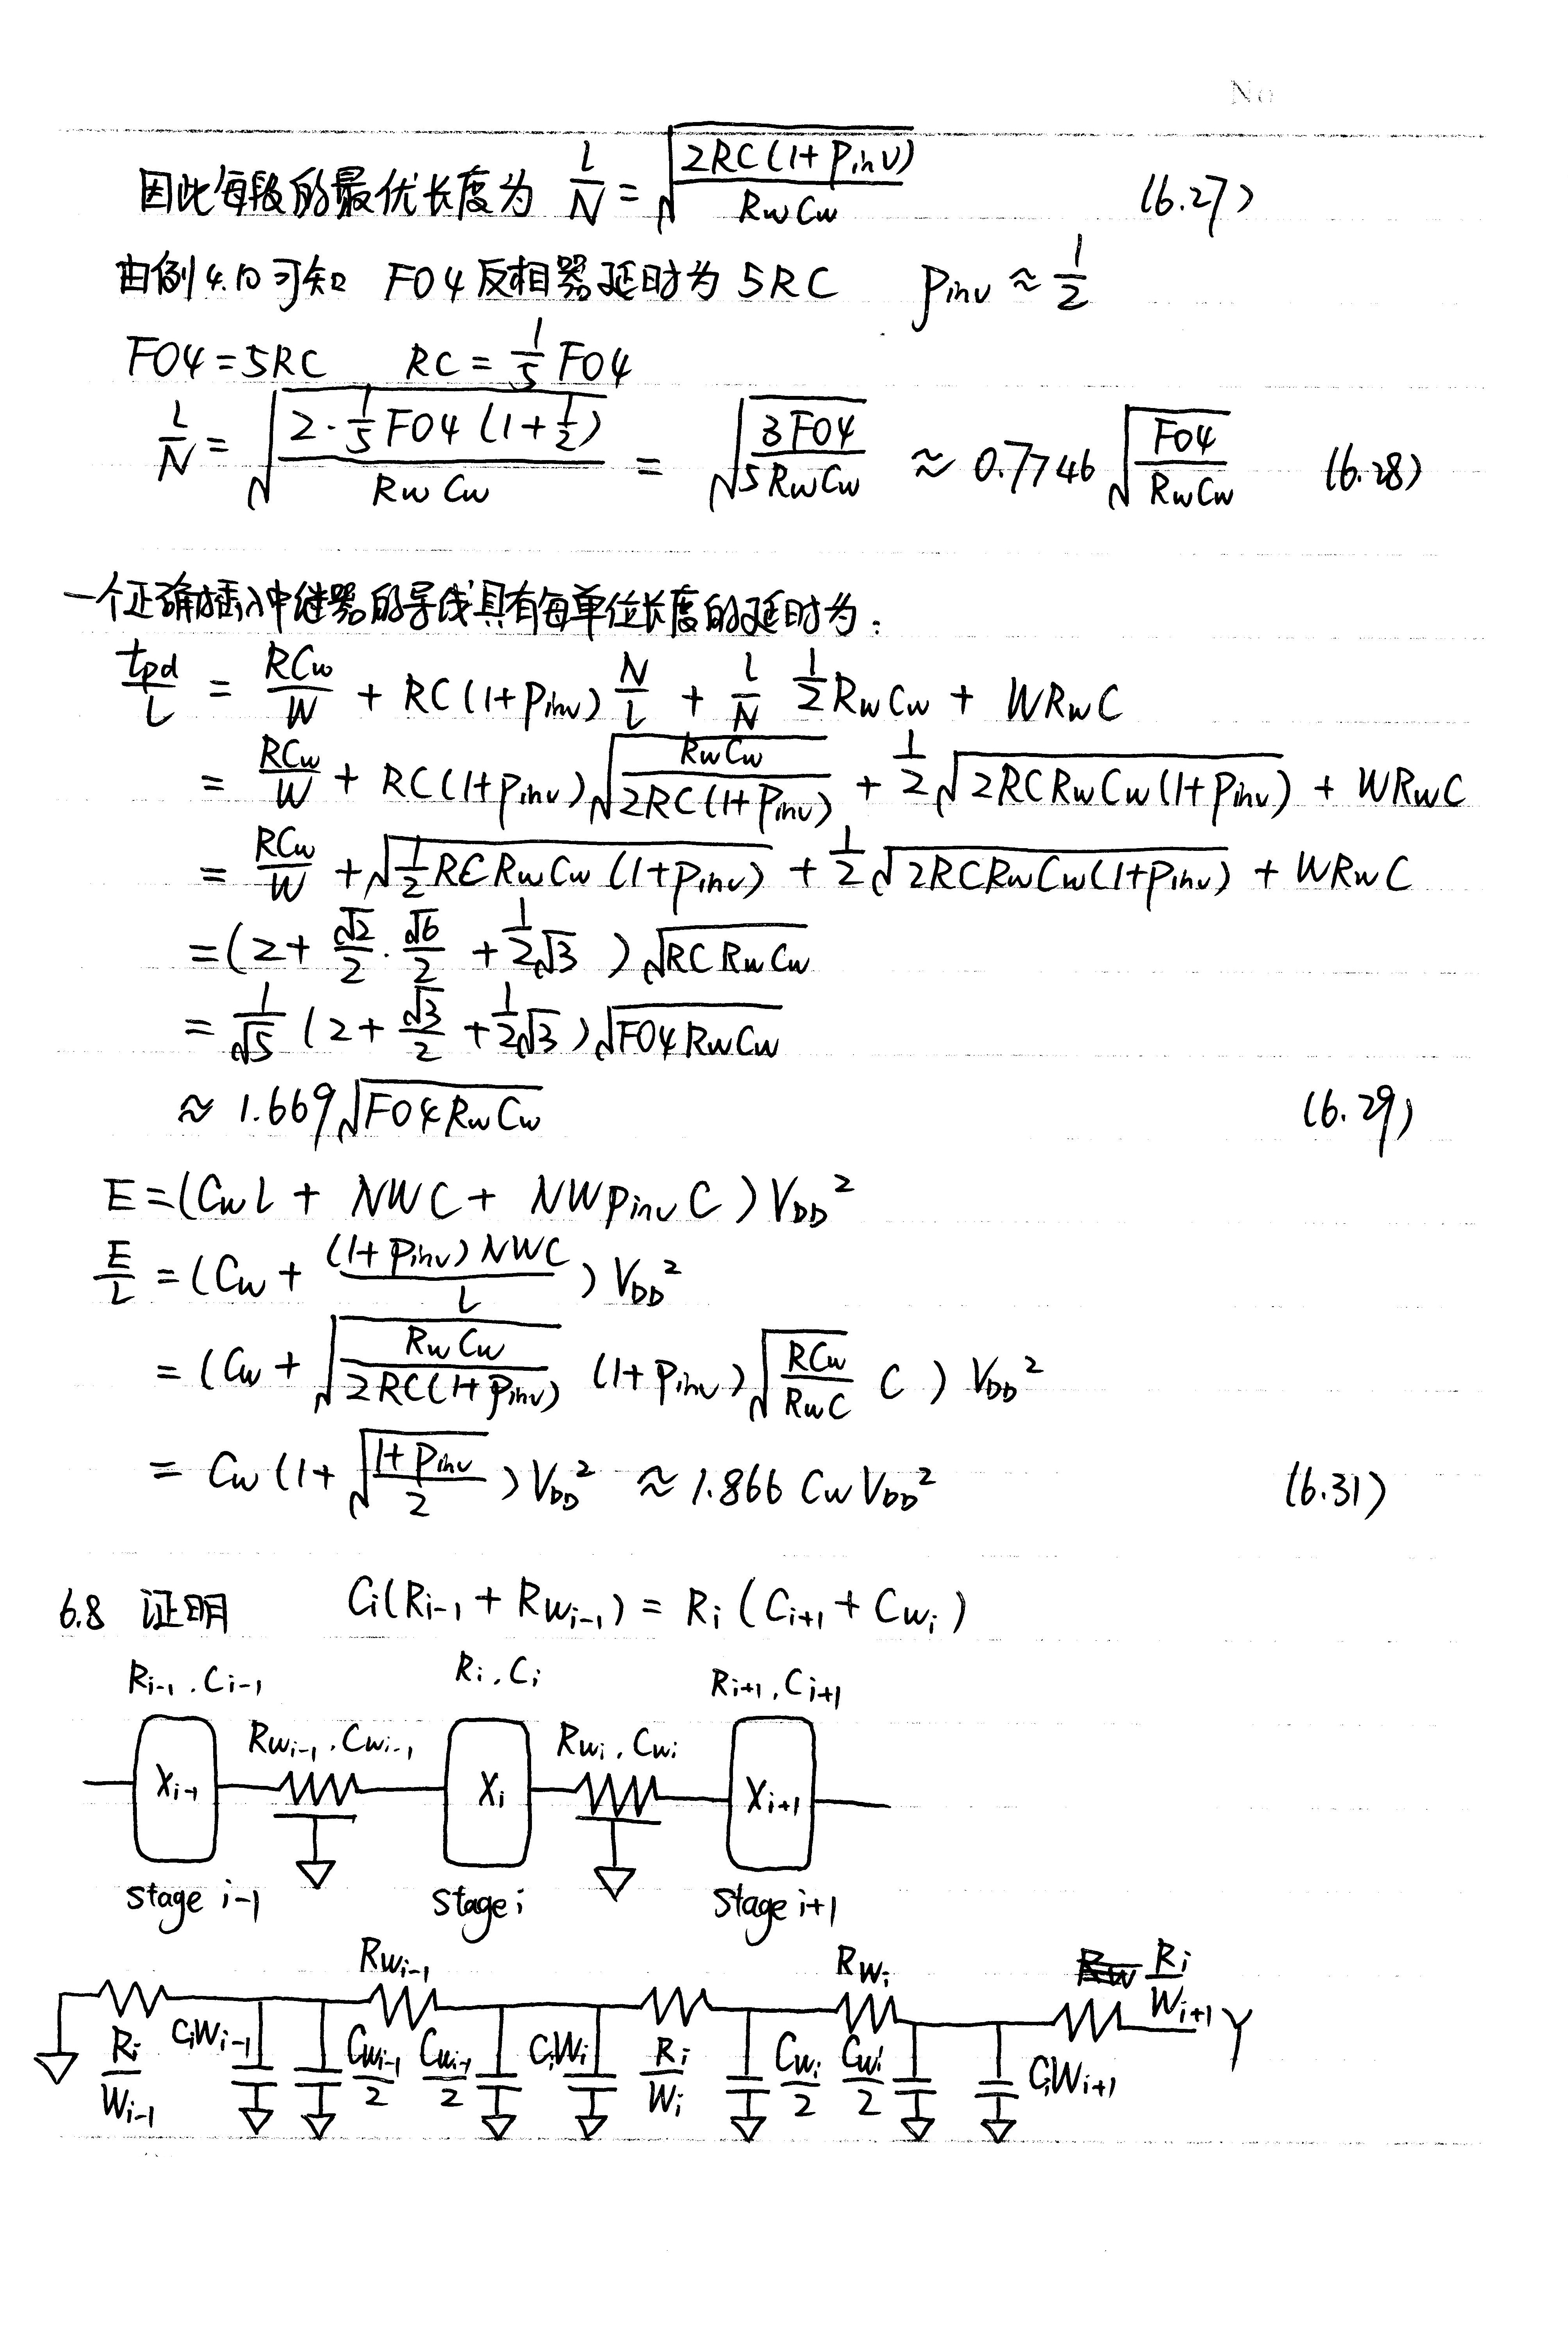 No
因此每段的最优长度为 l/N = √(2RC(1+pinv)/(RwCw)) (6.27)
由例4.10可知 FO4反相器延时为5RC pinv ≈ 1/2
FO4=5RC RC = 1/5 FO4
l/N = √(2·1/5 FO4 (1+1/2)/(RwCw)) = √(3FO4/(5RwCw)) ≈ 0.7746 √(FO4/(RwCw)) (6.28)
一个正确插入中继器的导线具有每单位长度的延时为:
tpd/L = RCw/W + RC(1+pinv) N/L + l/N 1/2 RwCw + WRwC
= RCw/W + RC(1+pinv)√(RwCw/(2RC(1+pinv))) + 1/2 √(2RCRwCw(1+pinv)) + WRwC
= RCw/W + √(1/2 RCRwCw(1+pinv)) + 1/2 √(2RCRwCw(1+pinv)) + WRwC
=(2+ √2/2 · √6/2 + 1/2 √3 ) √(RCRwCw)
= 1/√5 (2+ √3/2 + 1/2 √3)√(FO4RwCw)
≈ 1.669√(FO4RwCw) (6.29)
E=(CwL + NWC + NWpinvC)VDD²
E/L = (Cw + (1+pinv)NWC/L) VDD²
= (Cw + √(RwCw/(2RC(1+pinv))) (1+pinv)√(RCw/(RwC)) C) VDD²
= Cw (1+ √((1+pinv)/2))VDD² ≈ 1.866 CwVDD² (6.31)
6.8 证明 Ci(Ri-1 + Rwi-1) = Ri (Ci+1 + Cwi)
Ri-1 . Ci-1 Ri , Ci Ri+1 , Ci+1
Rwi-1 . Cwi-1 Rwi , Cwi
Xi-1 Xi Xi+1
stage i-1 stage i stage i+1
Rwi-1 Rwi Ri/Wi+1
Ri/Wi-1 CiWi-1 Cwi-1/2 Cwi-1/2 CiWi Ri/Wi Cwi/2 Cwi/2 CiWi+1 Y